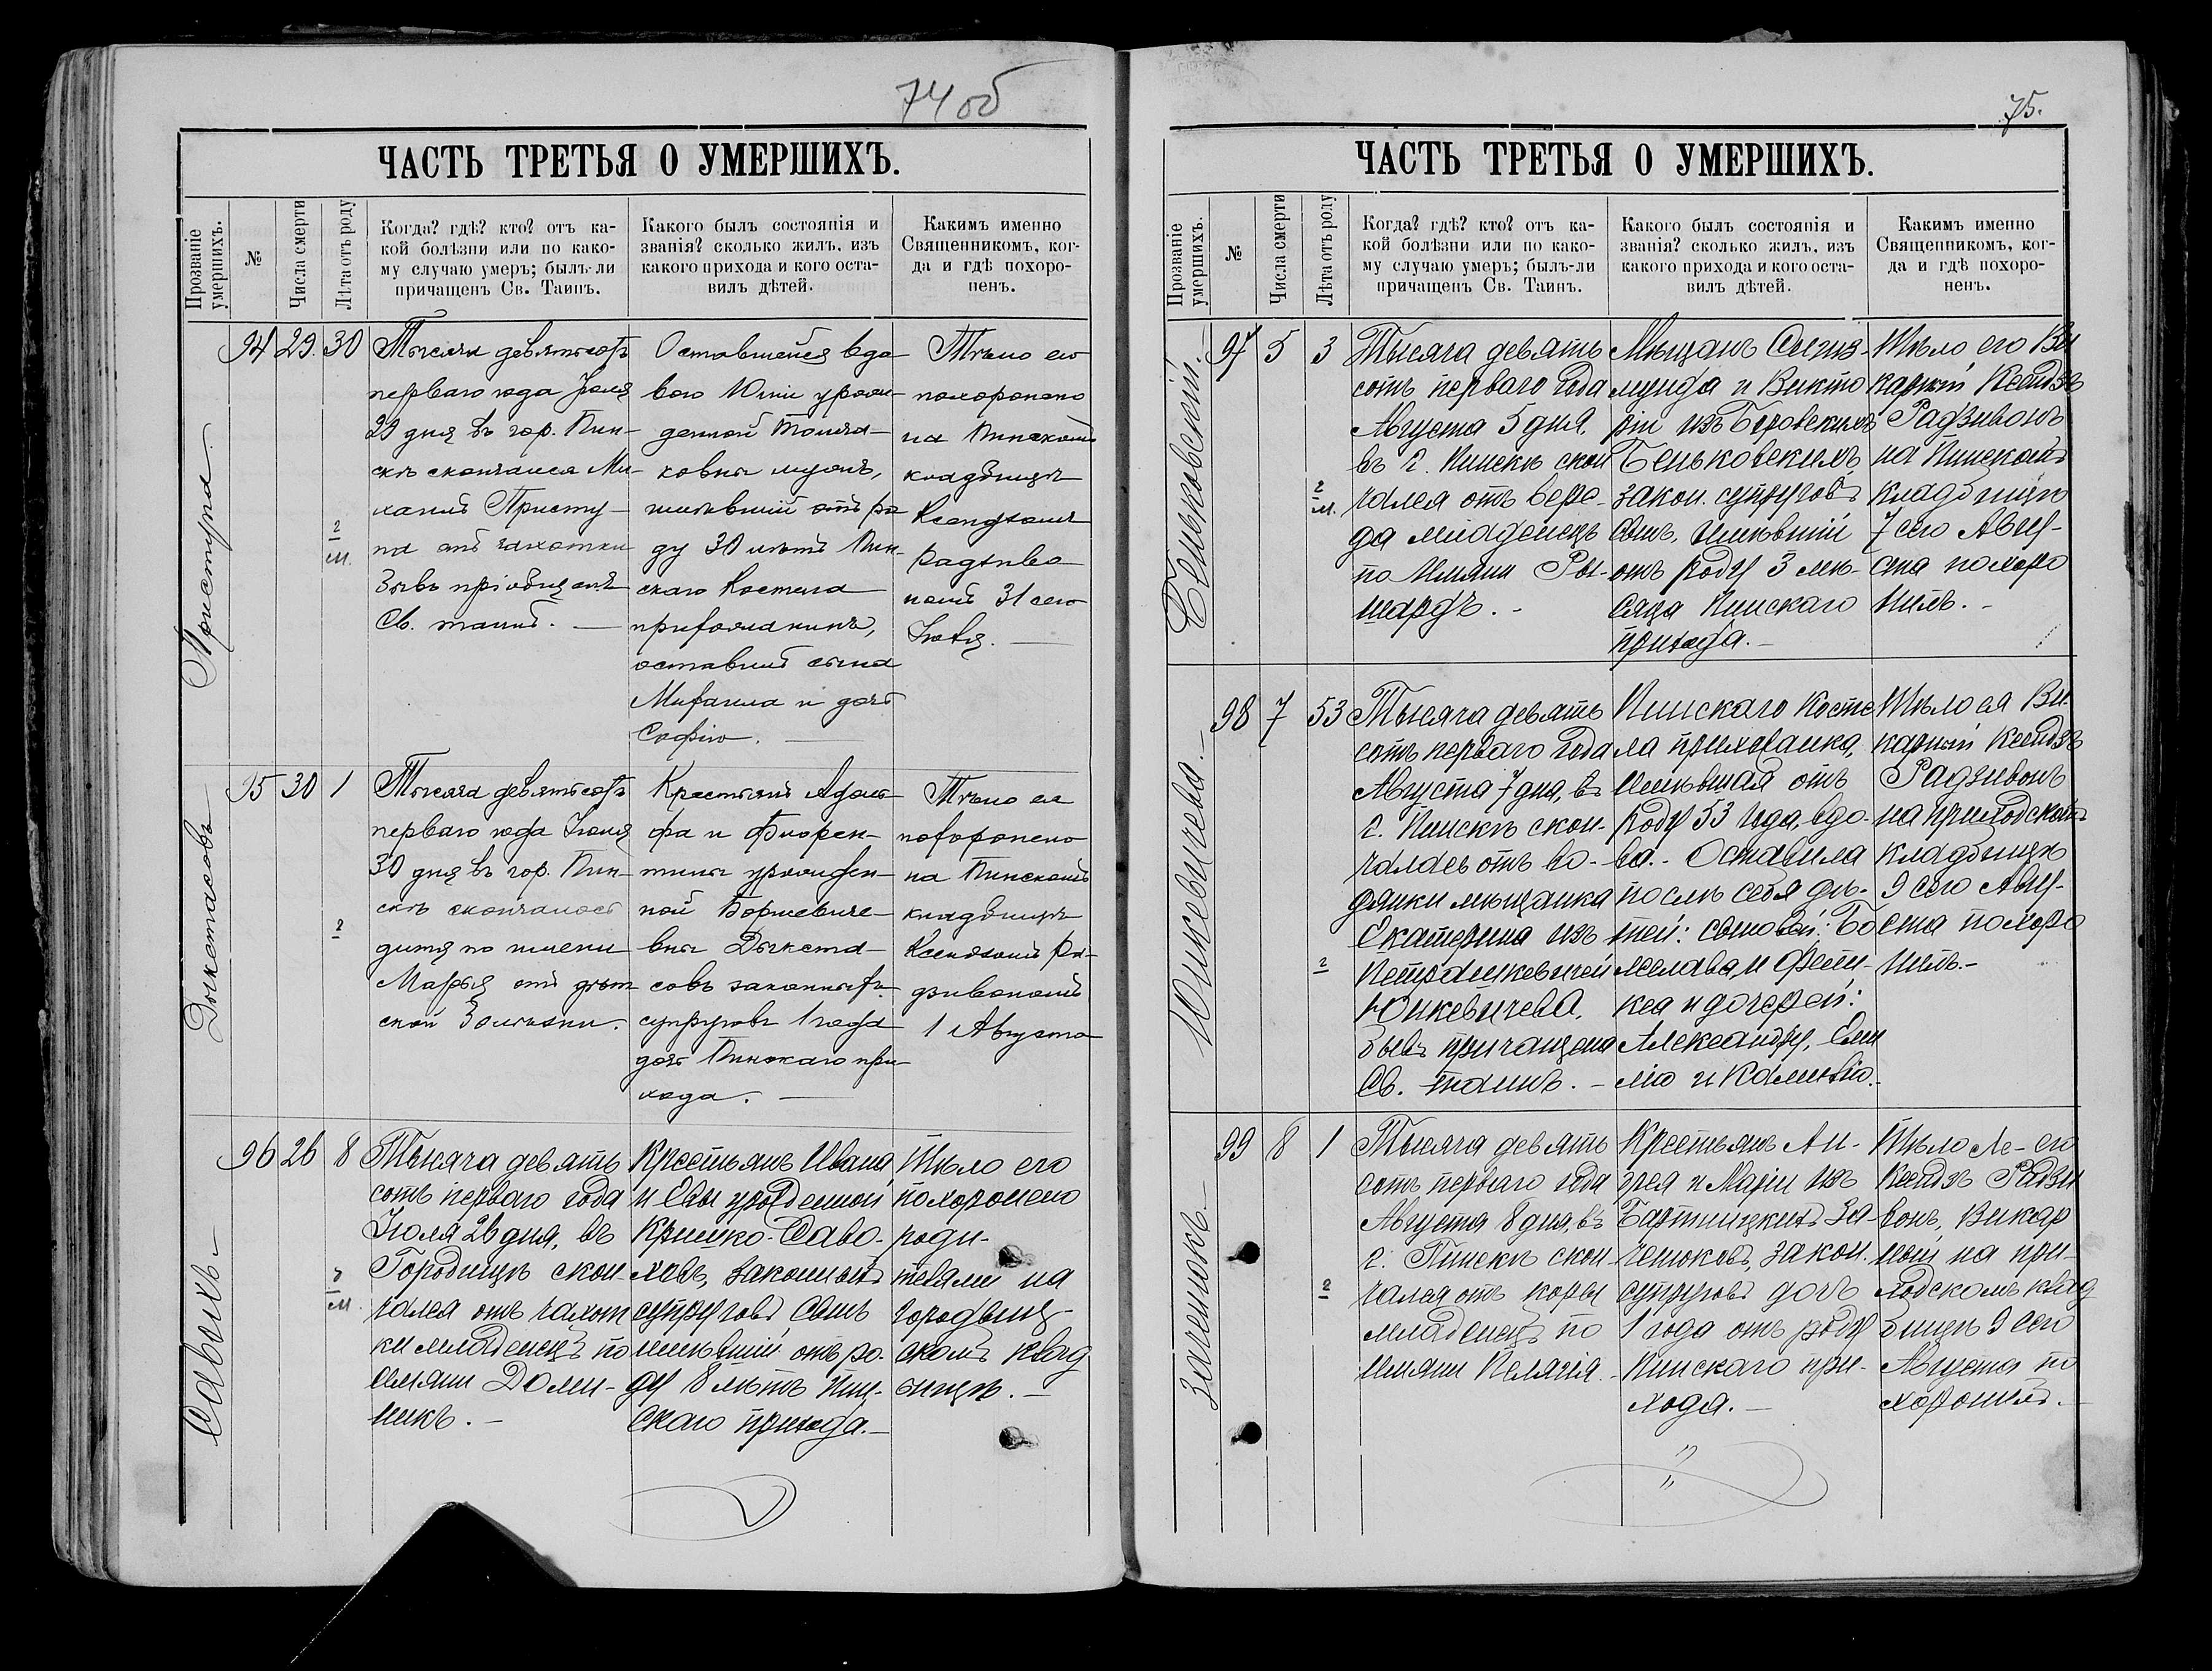 74 об
ЧАСТЬ ТРЕТЬЯ О УМЕРШИХЪ.
Прозваніе умершихъ.
№
Числа смерти
Лѣта отъ роду
Когда? гдѣ? кто? отъ ка-
кой болѣзни или по како-
му случаю умеръ; былъ-ли
причащенъ Св. Таинъ.
Какого былъ состоянія и
званія? сколько жилъ, изъ
какого прихода и кого оста-
вилъ дѣтей.
Какимъ именно
Священникомъ, ког-
да и гдѣ похоро-
ненъ.
Приступа
94
29.
30
2
м.
Тысяча девятьсотъ
перваго года Іюля
29 дня въ гор. Пин-
скѣ скончался Ми-
хаилъ Присту-
па отъ чахотки
бывъ пріобщенъ
Св. таинъ. —
Оставшейся вдо-
вою Юліи урож-
денной
ковны мужъ,
имѣвшій отъ ро-
ду 30 лѣтъ Пин-
скаго Костела
прихожанинъ,
оставилъ сына
Михаила и дочь
Софію. —
Тѣло его
похоронено
на Пинскомъ
кладбищѣ
Ксендзомъ
Радзиво-
номъ 31 сего
Іюля. —
Дыктасовъ
95
30
1
2
Тысяча девятьсотъ
перваго года Іюля
30 дня въ гор. Пин-
скѣ скончалось
дитя по имени
Марья отъ дѣт-
ской болѣзни.
Крестьянъ Адоль-
фа и Флорен-
тины урожден-
ной Боржевиче-
вны Дыкта-
совъ законныхъ
супруговъ 1 года
дочь Пинскаго при-
хода. —
Тѣло ея
похоронено
на Пинскомъ
кладбищѣ
Ксендзомъ Ра-
дзивономъ
1 Августа
Савихъ
96
26
8
м.
Тысяча девять
сотъ перваго года
Іюля 26 дня, въ
Городищѣ скон-
чался отъ чахот
ки младенецъ по
имяни Доми-
никъ. —
Крестьянъ Ивана
и Евы урожденной
Кришко-Саво-
законныхъ
супруговъ сынъ
имѣвшій отъ ро-
ду 8 лѣтъ Пин-
скаго прихода. —
Тѣло его
похоронено
роди-
телями на
Городищ-
скомъ клад
бищѣ. —
75.
ЧАСТЬ ТРЕТЬЯ О УМЕРШИХЪ.
Прозваніе умершихъ.
№
Числа смерти
Лѣта отъ роду
Когда? гдѣ? кто? отъ ка-
кой болѣзни или по како-
му случаю умеръ; былъ-ли
причащенъ Св. Таинъ.
Какого былъ состоянія и
званія? сколько жилъ, изъ
какого прихода и кого оста-
вилъ дѣтей.
Какимъ именно
Священникомъ, ког-
да и гдѣ похоро-
ненъ.
Беньковскій. —
97
5
3
2
м.
Тысяча девять
сотъ перваго года
Августа 5 дня,
въ г. Пинскѣ скон
чался отъ вере-
да младенецъ
по имяни Ры-
шардъ. -
Мѣщанъ Сигиз-
мунда и Викто
ріи изъ Боровскихъ
Беньковскихъ
закон. супруговъ
сынъ, имѣвшій
отъ роду 3 мѣ-
сяца Пинскаго
прихода. —
Тѣло его Ви
карный Ксендзъ
Радзивонъ
на Пинскомъ
кладбищѣ
7 сего Авгу-
ста похоро
нилъ. -
Юнкевичева. —
98
7
53
2
Тысяча девять
сотъ перваго года
Августа 7 дня, въ
г. Пинскѣ скон-
чалась отъ во-
дянки мѣщанка
Екатерина изъ
Петрашкевичей
Юнкевичева,
бывъ причащена
Св. таинъ. —
Пинскаго Косте
ла прихожанка,
имѣвшая отъ
роду 53 года, вдо-
ва. - Оставила
послѣ себя дѣ-
тей: сыновей: Бо
леслава, и Фели-
кса и дочерей:
Александру, Еми
лію и Камилію.
Тѣло ея Ви-
карный Ксендзъ
Радзивонъ
на приходскомъ
кладбищѣ
9 сего Авгу-
ста похоро
нилъ. -
Заченюкъ. —
99
8
1
2
Тысяча девять
сотъ перваго года
Августа 8 дня, въ
г. Пинскѣ скон
чался отъ коры
младенецъ по
имяни Пелагія.
Крестьянъ Ан-
дрея и Маріи изъ
Бартницкихъ За-
ченюковъ, закон.
супруговъ дочь
1 года отъ роду
Пинскаго при-
хода. —
Тѣло его
Ксендзъ Радзи
вонъ, Викар
ный на при-
ходскомъ клад
бищѣ 9 сего
Августа по
хоронилъ. —